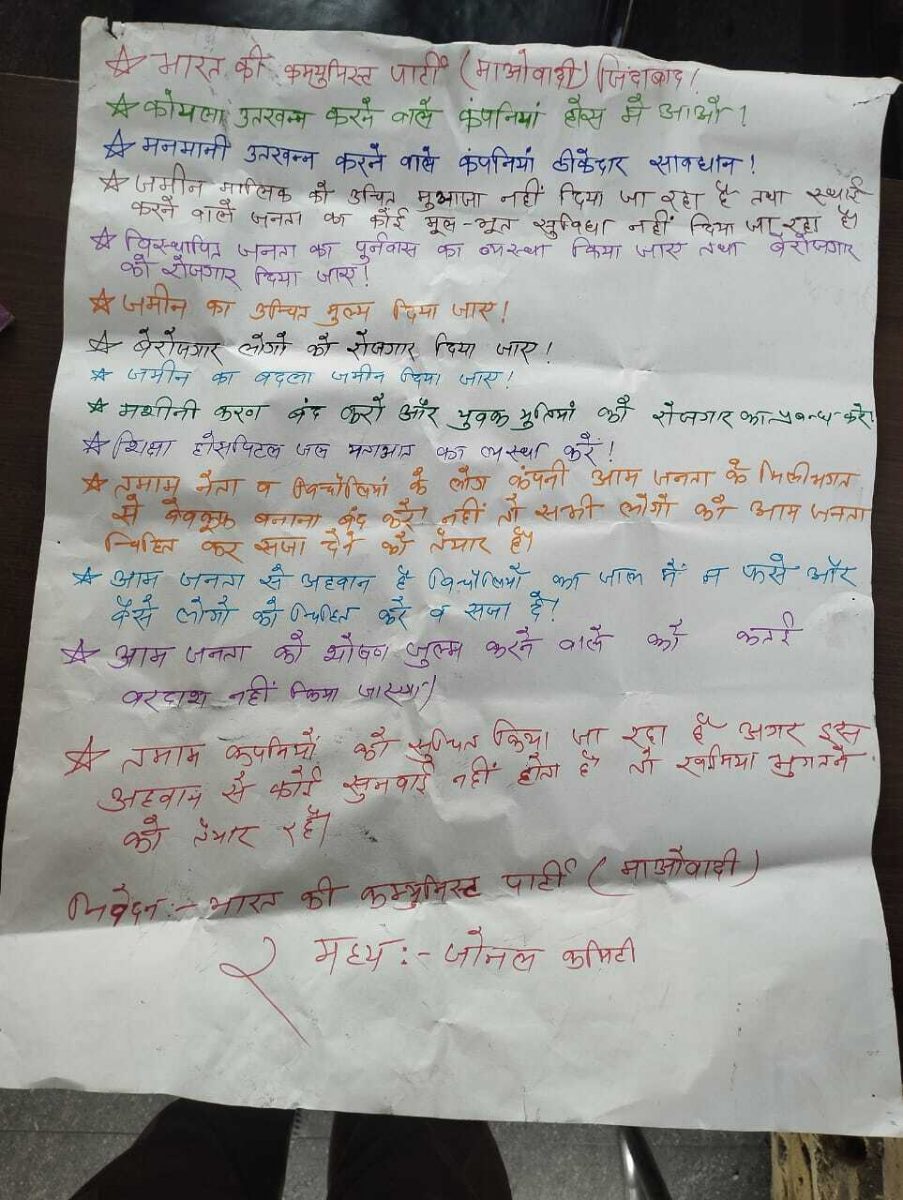 ☆ भारत की कम्युनिस्ट पार्टी (माओवादी) जिंदाबाद!
☆ कोयला उतखन्न करने वाले कंपनियां होस में आओ!
☆ मनमानी उतखन्न करने वाले कंपनियां ठीकेदार सावधान!
☆ जमीन मालिक को उचित मुआजा नहीं दिया जा रहा है तथा स्थाई
करने वाले जनता का कोई मूल-भूत सुविधा नहीं दिया जा रहा है।
☆ विस्थापित जनता का पुर्नवास का व्यस्था किया जाए तथा बेरोजगार
को रोजगार दिया जाए!
☆ जमीन का उचित मुल्य दिया जाए!
☆ बेरोजगार लोगों को रोजगार दिया जाए!
☆ जमीन का बदला जमीन दिया जाए!
☆ मशीनी करण बंद करो और युवक युतियां को रोजगार का प्रबन्ध करे!
☆ शिक्षा होसपिटल जल का व्यस्था करें!
☆ तमाम नेता व विचौलियां के लोग कंपनी आम जनता के मिलीभगत
से वेवकूफ बनाना बंद करें। नहीं तो सभी लोगों को आम जनता
चिहित कर सजा देने को तैयार है।
☆ आम जनता से अहवान है विचौलियों का जाल में न फसे और
वैसे लोगो को चिहित करे व सजा दें!
☆ आम जनता को शोषण जुल्म करने वाले को कतई
वरदाश नहीं किया जाएगा)
☆ तमाम कंपनियों को सुचित किया जा रहा है अगर इस
अहवाम से कोई सुनवाई नहीं होता है तो खमिया भुगतने
को तैयार रहें।
निवेदन :- भारत की कम्युनिस्ट पार्टी (माओवादी)
मध्य :- जोनल कमिटी